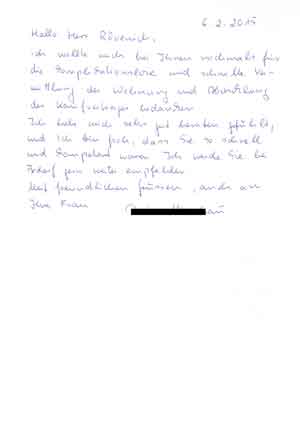 6.2.2015
Hallo Herr Rövenich,
ich wollte mich bei Ihnen nochmals für
die komplikationslose und schnelle Ver-
mittlung der Wohnung und Abwicklung
des Kaufvertrages bedanken
Ich habe mich sehr gut beraten gefühlt,
und ich bin froh, dass Sie so schnell
und kompetent waren. Ich werde Sie bei
Bedarf gern weiter empfehlen
Mit freundlichen Grüssen, auch an
Ihre Frau